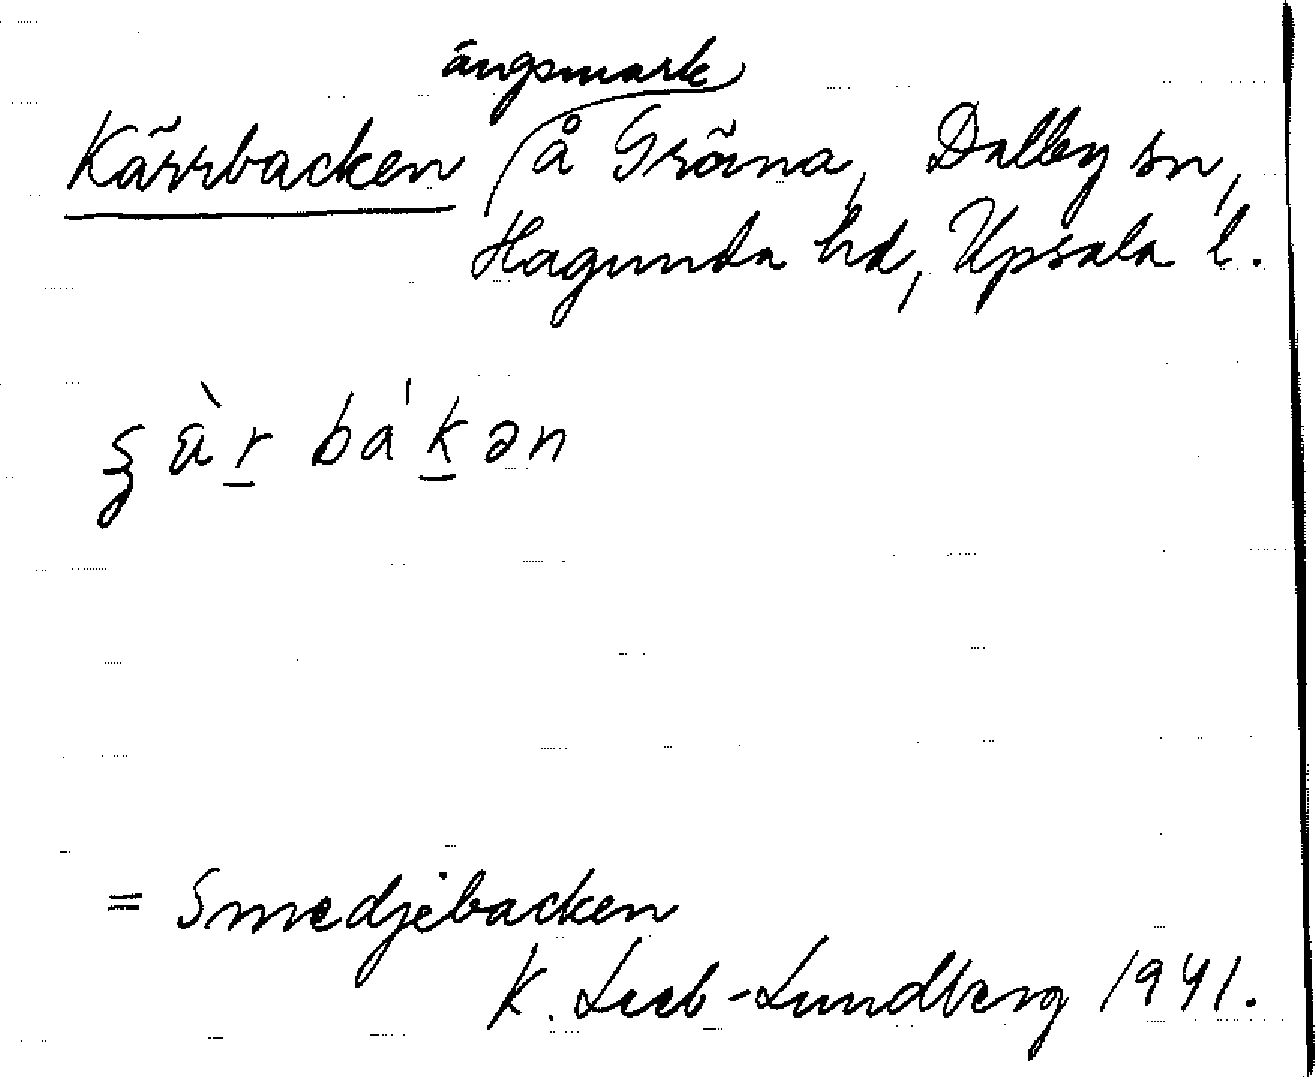 ängsmark
Kärrbacken å Gräna, Dalby sn,
Hagunda hd, Upsala l.
ʂä̀r báˈkən
= Smedjebacken
K. Leeb-Lundberg 1941.